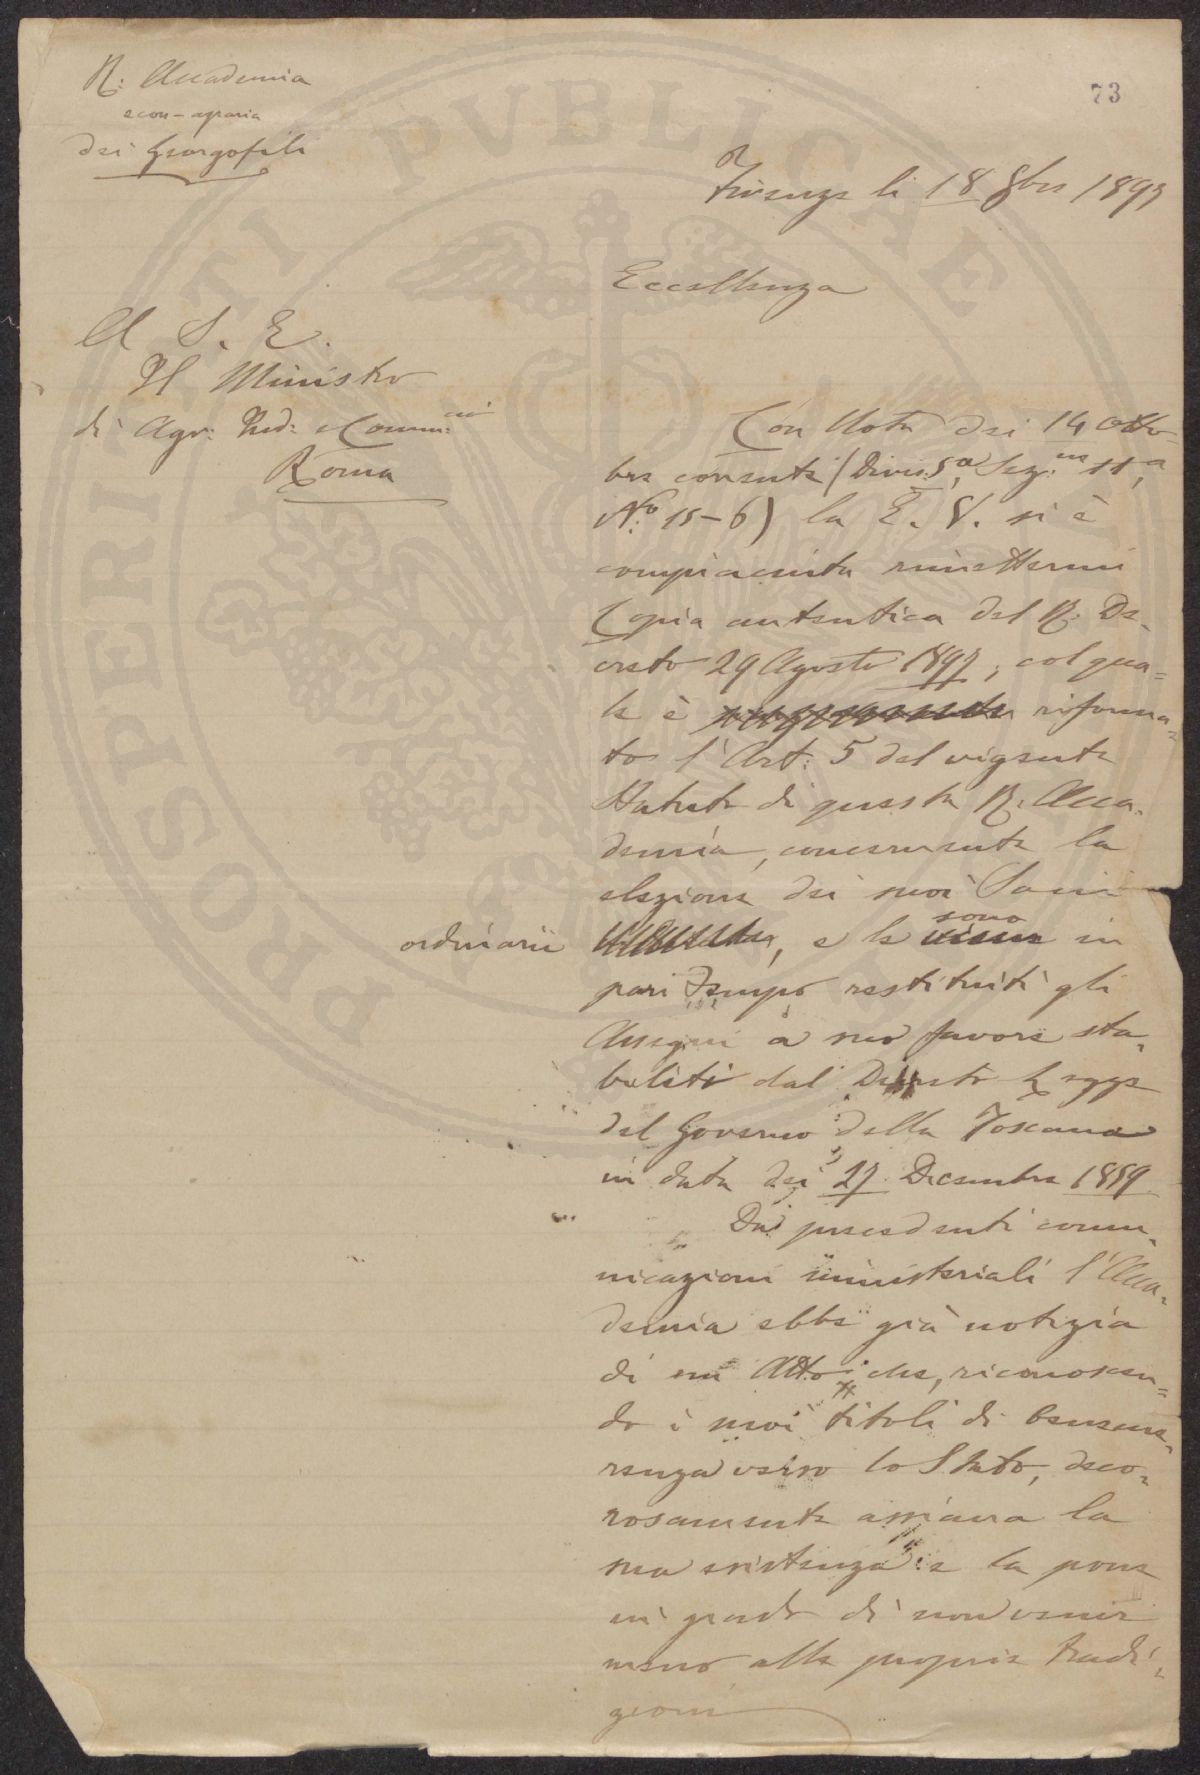 R: Accademia
econ-agraria
dei Georgofili
73
Firenze li 18 8bre 1897
Eccellenza
A S. E.
Il Ministro
di Agr: Ind: e Comm:cio
Roma
Con Nota dei 14 Otto-
bre corrente (Divis. 5a, Sez.ne 11a,
No. 15-6) la E. V. si è
compiaciuta rimettermi
Copia autentica del R. De-
creto 29 Agosto 1897, col qua=
le è riforma=
to l'Art: 5 del vigente
Statuto di questa R. Acca-
demia, concernente la
elezione dei suoi Socii
ordinarii , e le sono in
pari Tempo restituiti gli
Assegni a suo favore sta-
biliti dal Decreto Legge
del Governo della Toscana
in data dei 27 Decembre 1859
Dai precedenti comu-
nicazioni ministeriali l'Acca=
demia ebbe già notizia
di un Atto che, riconoscen=
do i suoi titoli di beneme-
renza verso lo Stato, deco-
rosamente assicura la
sua esistenza e la pone
in grado di non venir
meno alle proprie tradi-
zioni
PROSPERITATI PVBLICAE